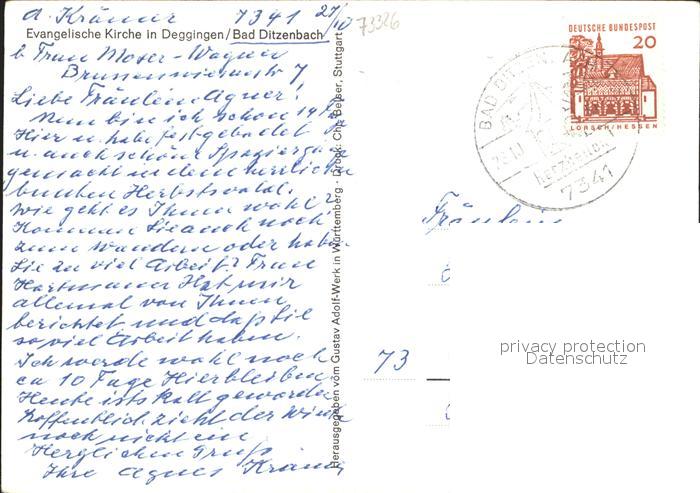 A. Krämer 7341 27/10
73326
Evangelische Kirche in Deggingen/Bad Ditzenbach
b. Frau Moser-Wagner
Brunnenwiesenstr 7
Liebe Fräulein Agner!
Nun bin ich schon 14 T.
Hier u. habe fest gebadet
u. auch schön Spaziergä
gemacht in dem herrlichen
bunten Herbstwald.
Wie geht es Ihnen wohl?
Kommen Sie auch noch
zum Wandern oder habe
Sie zu viel Arbeit? Frau
Hartmauer Hat mir
allemal von Ihnen
berichtet und daß Sie
so viel Arbeit haben.
Ich werde wohl noch
ca 10 Tage Hierbleiben
Heute ists kalt geworden
hoffentlich zieht der Winter
noch nicht ein
Herzlichen Gruß
Ihre Agnes Krämer
Herausgegeben vom Gustav Adolf-Werk in Württemberg - Druck: Chr. Belser, Stuttgart
DEUTSCHE BUNDESPOST
20
LORSCH/HESSEN
BAD DITZENB
7341
Fräulein
73
privacy protection
Datenschutz